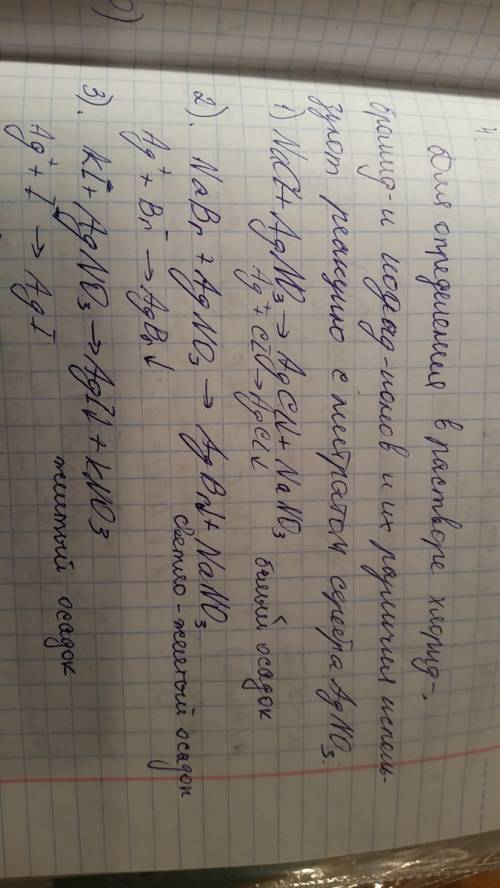 4.
Для определения в растворе хлорид-,
бромид- и иодид-ионов и их различия исполь-
зуют реакцию с нитратом серебра AgNO3.
1) NaCl + AgNO3 → AgCl↓ + NaNO3 белый осадок
Ag⁺ + Cl⁻ → AgCl↓
2). NaBr + AgNO3 → AgBr↓ + NaNO3
Ag⁺ + Br⁻ → AgBr↓ светло-желтый осадок
3). KI + AgNO3 → AgI↓ + KNO3
Ag⁺ + I⁻ → AgI желтый осадок